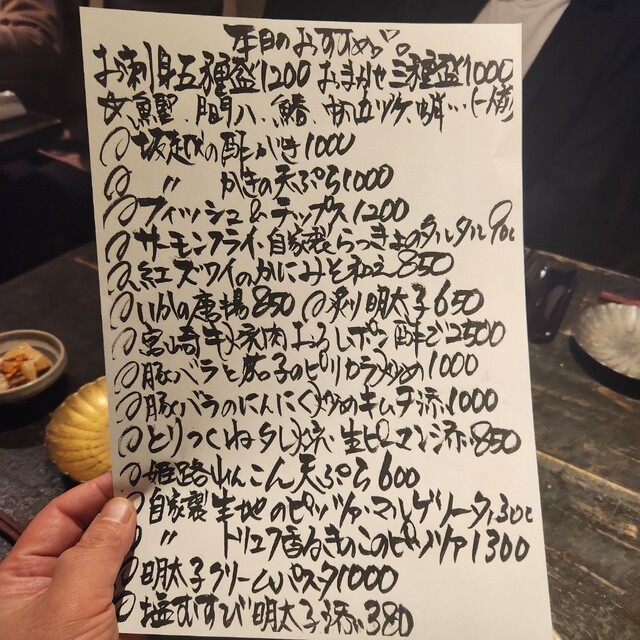 本日のおすすめ
お刺身五種盛1200 おまかせ三種盛1000
(一人前)
坂越の酢がき1000
〃 かきの天ぷら1000
フィッシュ&チップス1200
サーモンフライ・自家製らっきょのタルタル900
紅ズワイのかにみそ和え850
いかの唐揚850 炙り明太子650
宮崎牛 焼肉おろしポン酢で2500
豚バラと茄子のピリカラ炒め1000
豚バラのにんにく炒めキムチ添1000
とりつくね タレ焼・生ピーマン添850
姫路れんこん天ぷら600
自家製生地のピッツァ・マルゲリータ1300
〃 トリュフ香るきのこのピッツァ1300
明太子クリームパスタ1000
塩むすび明太子添380